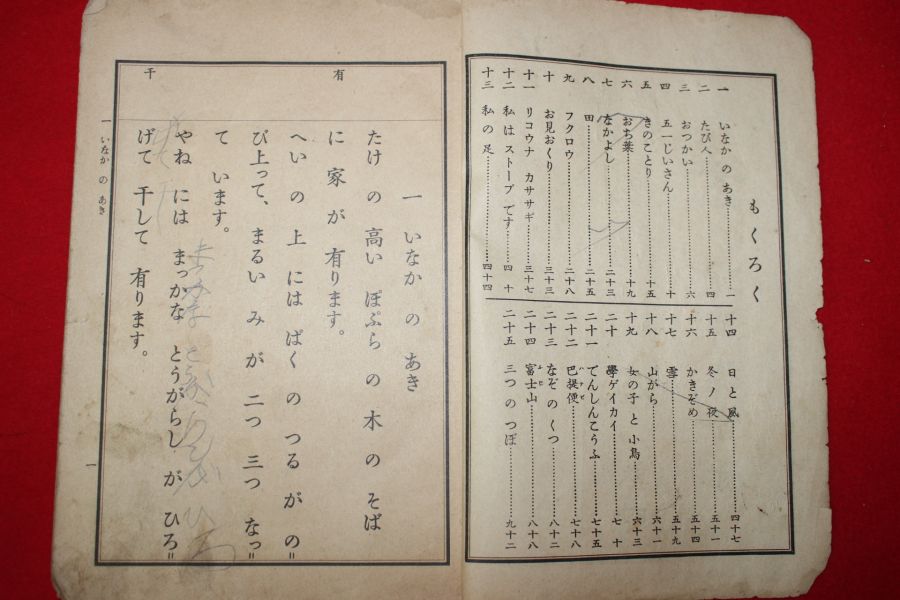 もくろく
一 いなか の あき………一
二 たび人………四
三 おつかい………六
四 五一じいさん………十
五 きのことり………十五
六 おち葉………十九
七 なかよし………二十三
八 田………二十五
九 フクロウ………二十八
十 お見おくり………三十三
十一 リコウナ カササギ………三十七
十二 私は ストーブ です………四十
十三 私 の 足………四十四
十四 日 と 風………四十七
十五 冬 ノ 夜………五十一
十六 かきぞめ………五十四
十七 雪………五十九
十八 山がら………六十一
十九 女の子 と 小鳥………六十三
二十 學ゲイカイ………七十
二十一 てんしんこうふ………七十五
二十二 巴提便………七十八
二十三 なぞ の くつ………八十二
二十四 富士山………八十八
二十五 三つ の つぼ………九十二
有
干
一 いなか の あき
たけ の 高い ぽぷら の 木 の そば
に 家 が 有ります。
へい の 上 には ばく の つる が の〃
び上って、まるい み が 二つ 三つ なっ〃
て います。
やね には まっかな とうがらし が ひろ〃
げて 干して 有ります。
一 いなか の あき
一